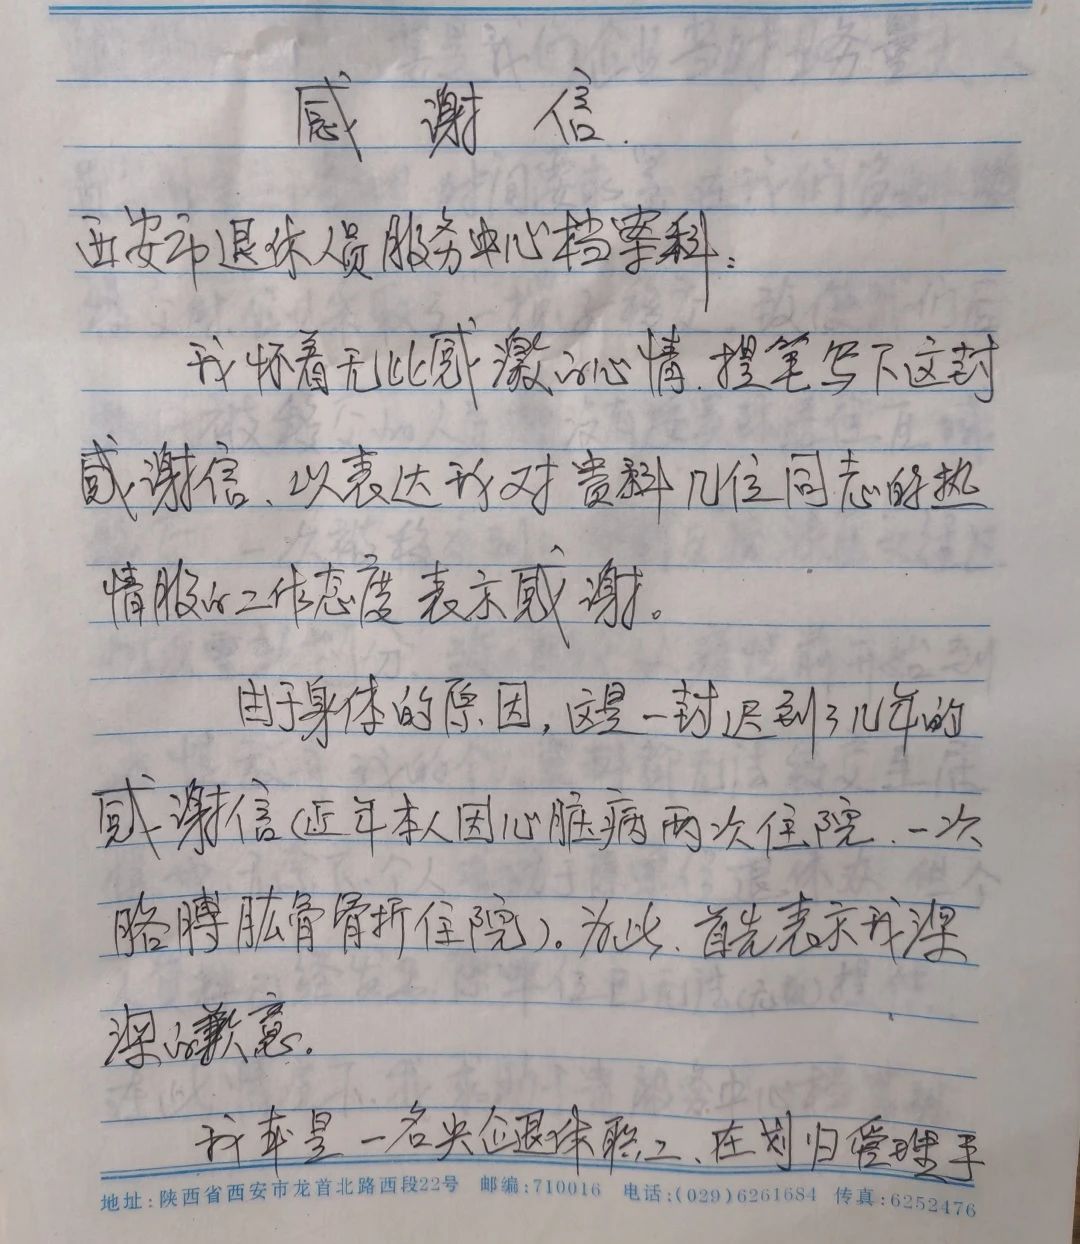 感谢信.
西安市退休人员服务中心档案科:
我怀着无比感激的心情、提笔写下这封
感谢信、以表达我对贵科几位同志的热
情服的工作态度表示感谢。
由于身体的原因,这是一封迟到了几年的
感谢信(近年本人因心脏病两次住院、一次
胳膊肱骨骨折住院)。为此、首先表示我深
深的歉意。
我本是一名央企退休职工、在划归管理手
地址:陕西省西安市龙首北路西段22号 邮编:710016 电话:(029)6261684 传真:6252476